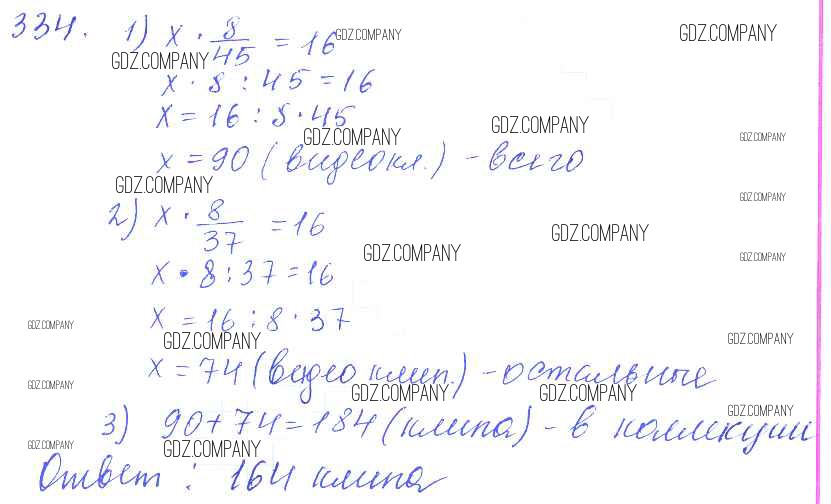 334. 1) x · 8/45 = 16 GDZ.COMPANY
GDZ.COMPANY
GDZ.COMPANY
x · 8 : 45 = 16
x = 16 : 8 · 45
GDZ.COMPANY
GDZ.COMPANY
GDZ.COMPANY
x = 90 (видеокл.) - всего
GDZ.COMPANY
GDZ.COMPANY
2) x · 8/37 = 16
GDZ.COMPANY
GDZ.COMPANY
GDZ.COMPANY
x · 8 : 37 = 16
x = 16 : 8 · 37
GDZ.COMPANY
GDZ.COMPANY
GDZ.COMPANY
x = 74 (видео клип.) - остальные
GDZ.COMPANY
GDZ.COMPANY
GDZ.COMPANY
GDZ.COMPANY
3) 90 + 74 = 184 (клипа) - в коллекции
GDZ.COMPANY
GDZ.COMPANY
Ответ : 164 клипа